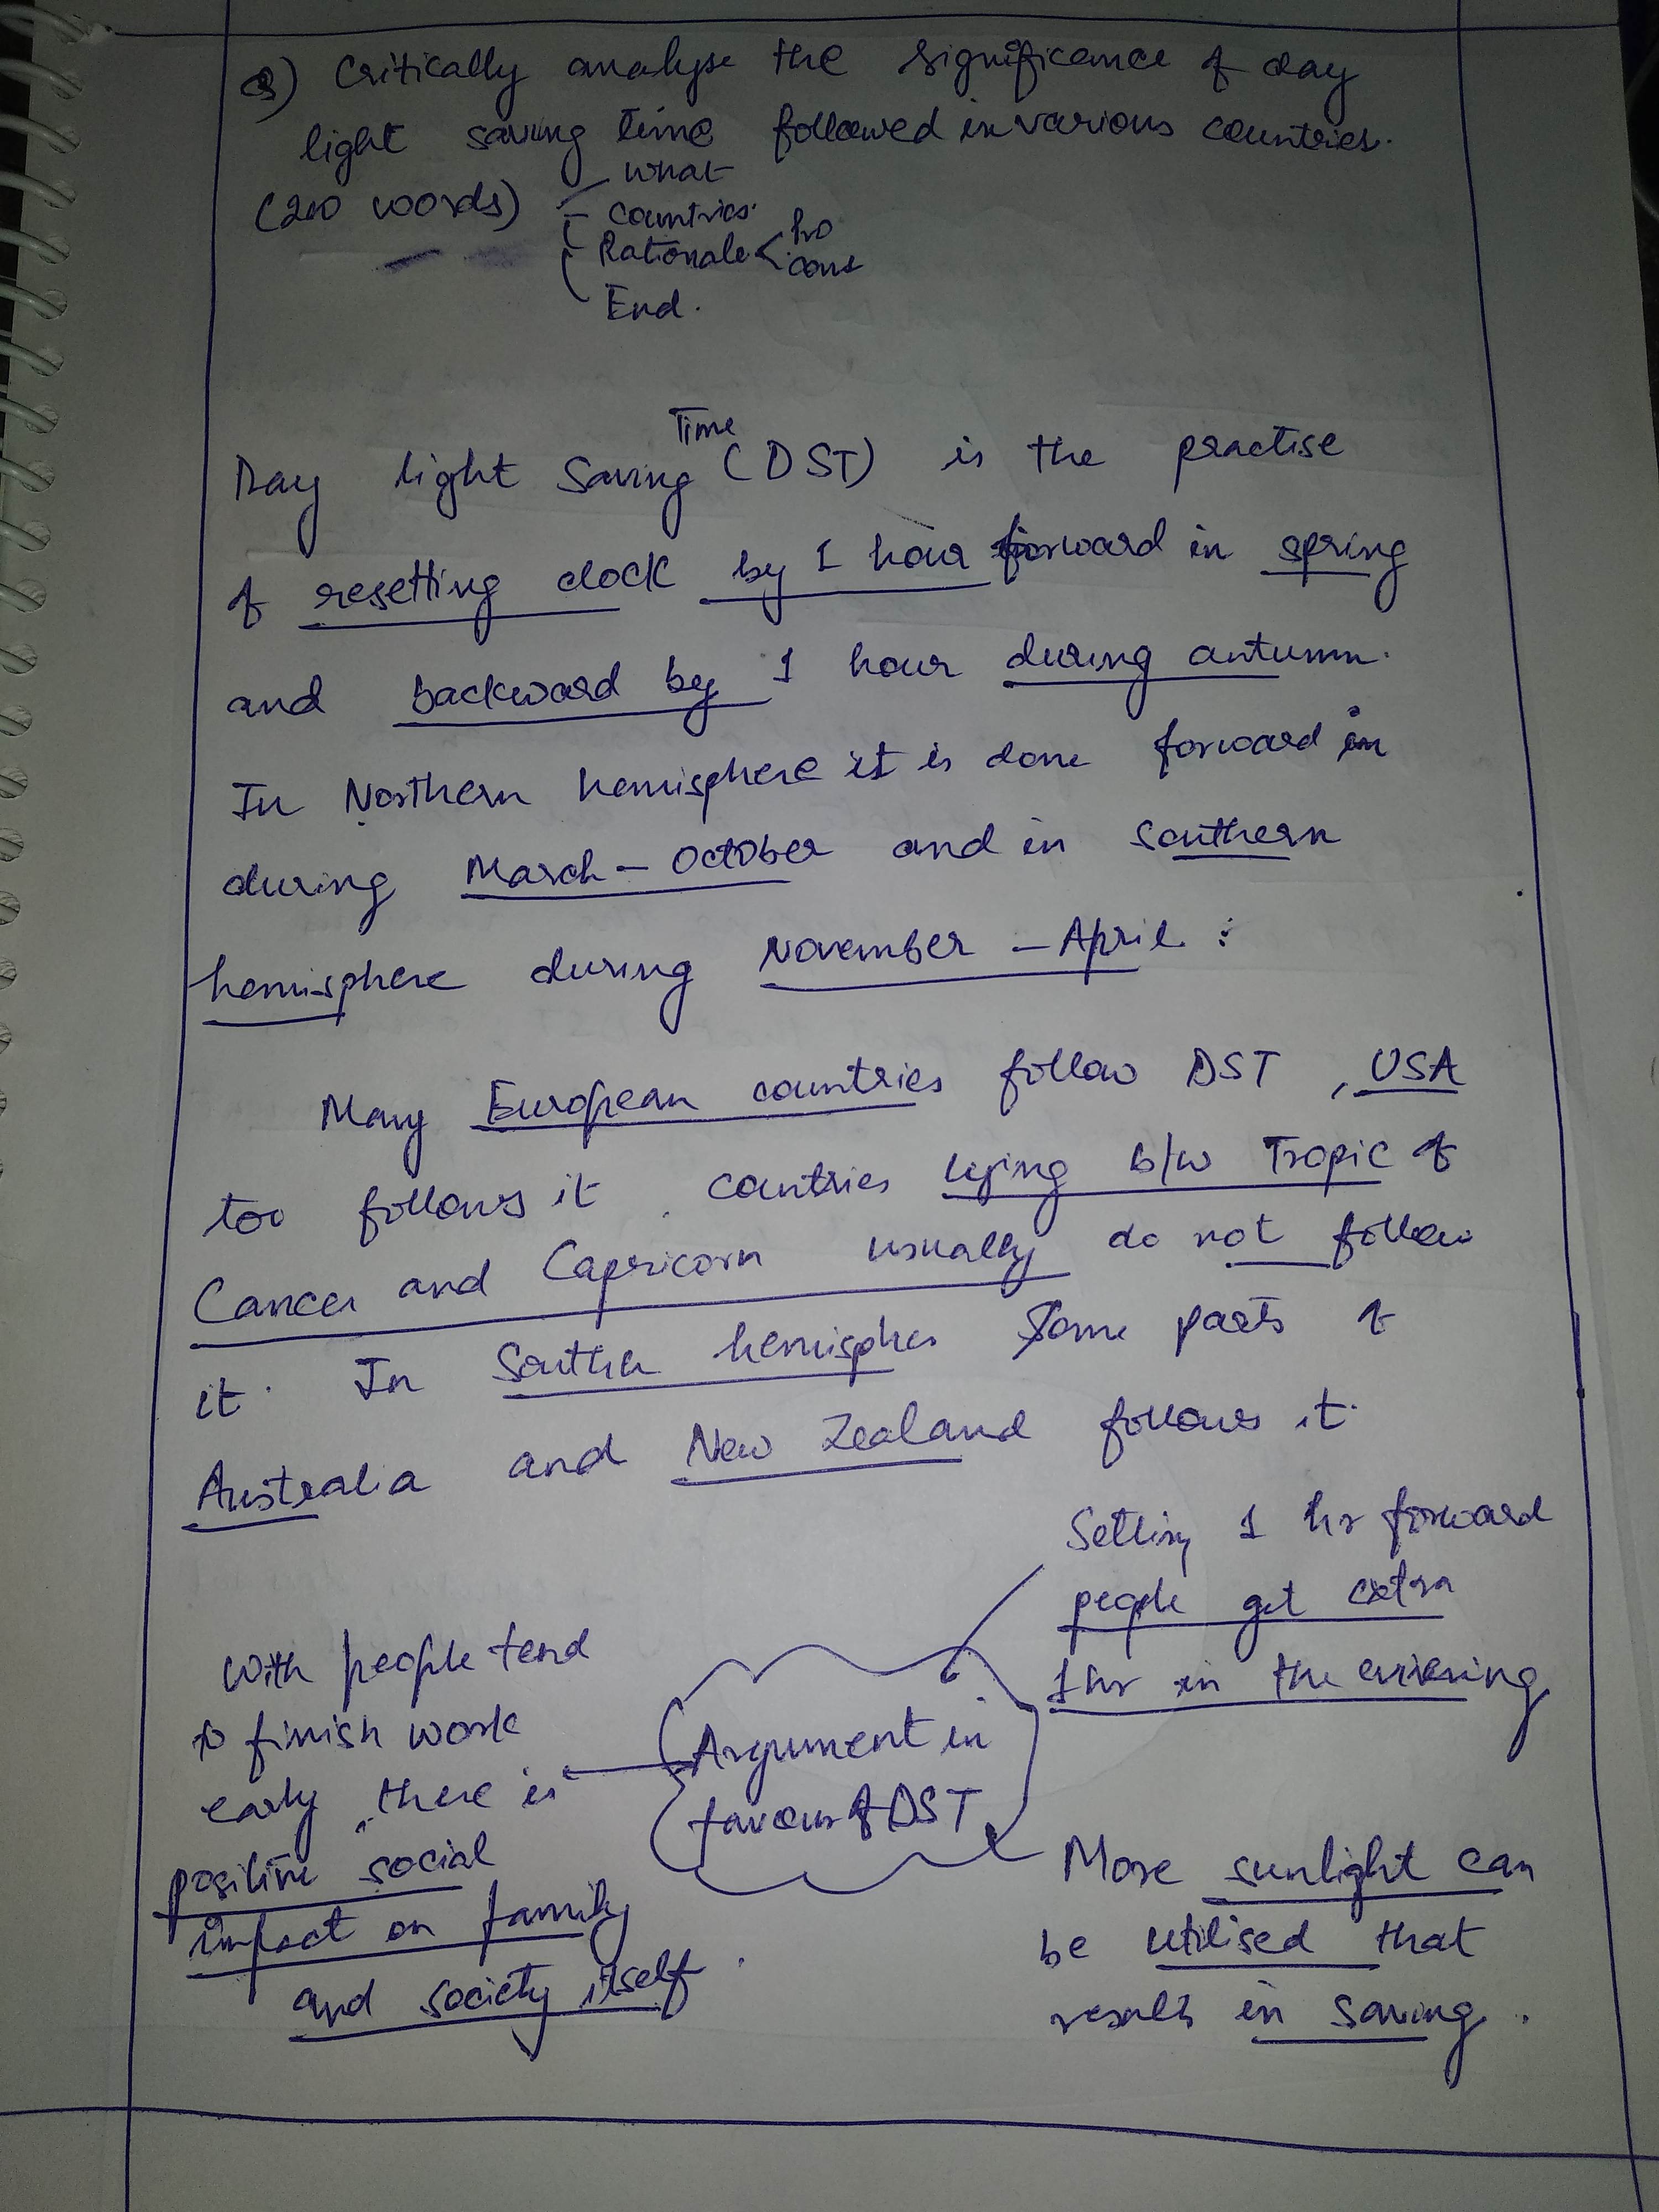 Q) Critically analyse the significance of day
light saving time followed in various countries.
(200 words)
what
countries.
Rationale < pro
cons
End.
Time
Day light Saving (DST) is the practise
of resetting clock by 1 hour forward in spring
and backward by 1 hour during autumn.
In Northern hemisphere it is done forward in
during March - October and in southern
hemisphere during November - April :
Many European countries follow DST, USA
too follows it. countries lying b/w Tropic of
Cancer and Capricorn usually do not follow
it. In Southern hemisphere Some parts of
Australia and New Zealand follows it.
Setting 1 hr forward
people get extra
1hr in the evening
With people tend
to finish work
early, there is
positive social
impact on family
and society itself.
Argument in
favour of DST
More sunlight can
be utilised that
results in saving.